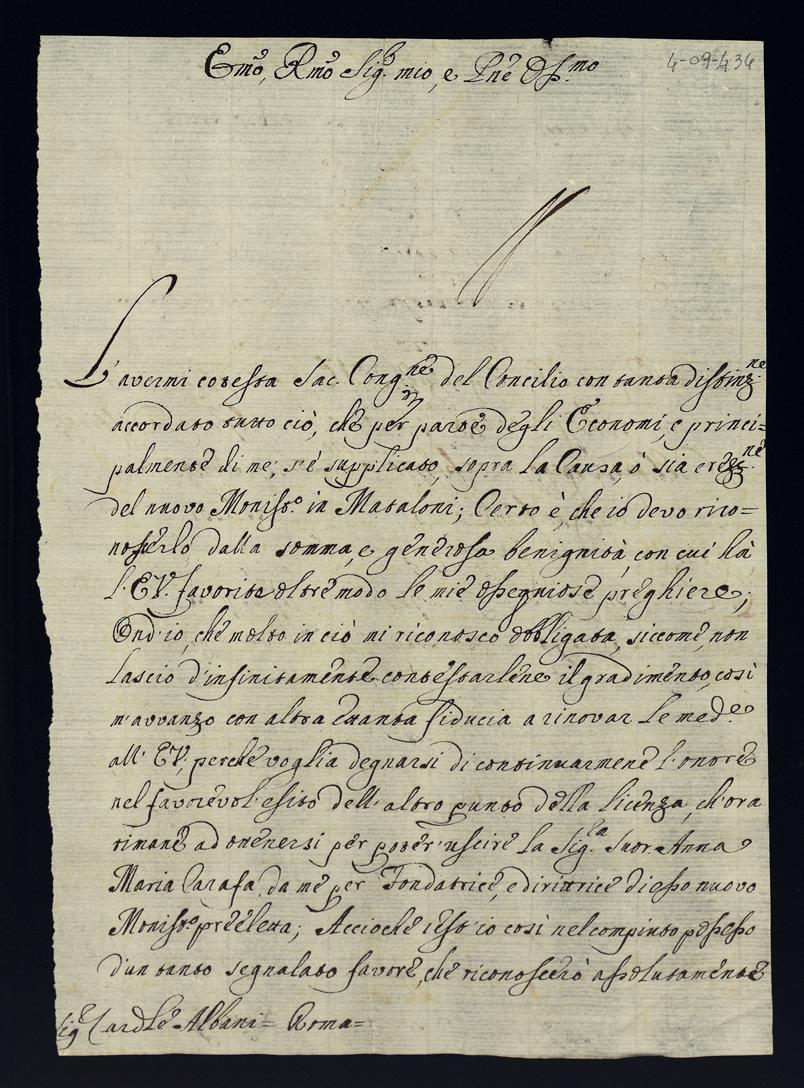 Emo, Rmo Sigr. mio, e Pne Ossmo
4-09-434
L'avermi cotesta Sac. Congne del Concilio con tanta distinzne
accordato tutto ciò, che per parte degli Economi, e princi=
palmente di me, s'è supplicato, sopra la Causa, ò sia erezne
del nuovo Monisto. in Mataloni; Certo è, che io devo rico=
noscerlo dalla somma, e generosa benignità, con cui hà
l'EV. favorita oltremodo le mie ossequiose preghiere;
Ond'io, che molto in ciò mi riconosco obbligata, siccome, non
lascio d'infinitamente contestarlene il gradimento, così
m'avvanzo con altra tanta fiducia a rinovar le mede.
all' EV, perche voglia degnarsi di continuarmene l'onore
nel favorevol'esito dell'altro punto della licenza, ch'ora
rimane ad ottenersi per poter'uscire la Siga. Suor Anna
Maria Carafa, da me per Fondatrice, e dirittrice di esso nuovo
Monisto. preeletta; Accioche rest'io così nel compiuto possesso
d'un tanto segnalato favore, che riconoscerò assolutamente
Sige Cardle Albani = Roma =